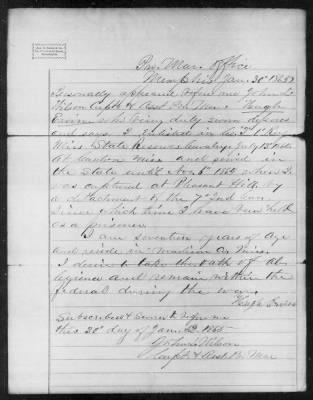 Pro. Mar. Office
Memphis Jan. 30" 1865
Personally appeared before me John L.
Wilson Capt & Asst Pro Mar. Hugh
Ervin who being duly sworn deposes
and says. I enlisted in Co. 1st Reg
Miss State Reserve Cavalry July 15" 1864
At Canton Miss and served in
the State until Nov. 8" 1864 when I
was captured at Pleasant Hill by
a detachment of the 7" Ind Cav.
Since which time I have been held
as a prisoner.
I am seventeen years of age
and reside in Madison Co. Miss.
I desire to take the oath of Al-
legiance and remain within the
federal during the war.
Hugh Ervin
Subscribed & Sworn to before me
this 30" day of Jany 1865
Wilson
Capt & Asst Pro Mar